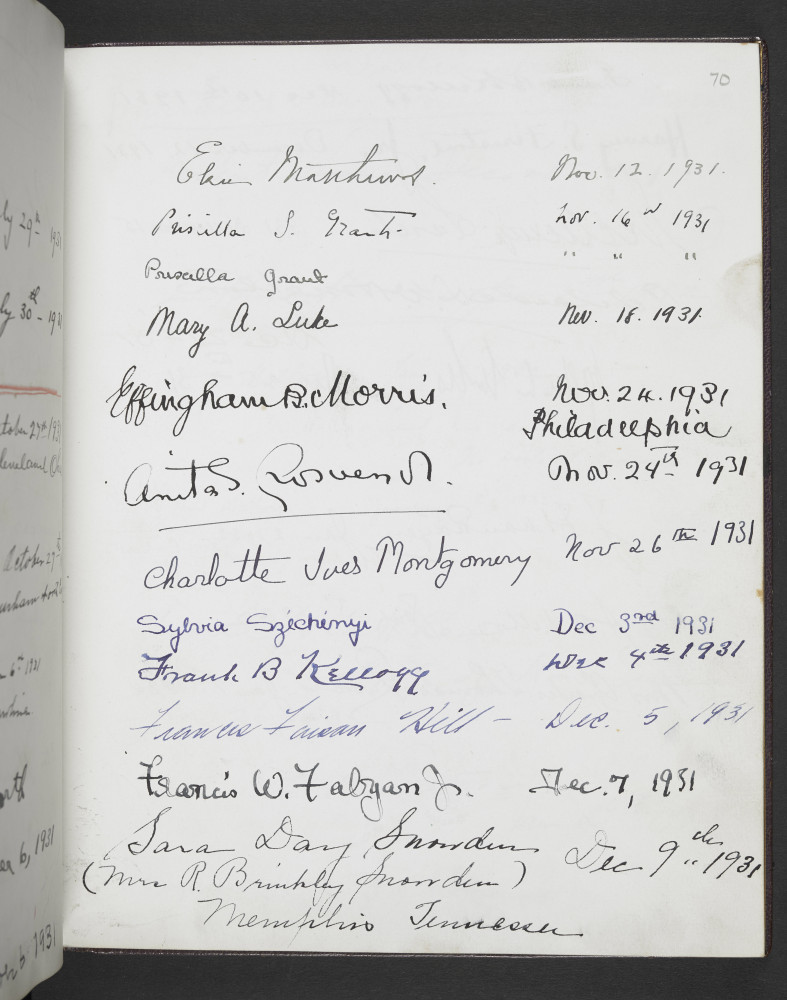 70
Elsie Matthews. Nov. 12. 1931.
Priscilla S. Grant. Nov. 16 1931
Priscilla Grant " " "
Mary A. Luke Nov. 18. 1931.
Effingham B. Morris. Nov. 24. 1931
Philadelphia
Anita S. Grosvenor. Nov. 24th 1931
Charlotte Ives Montgomery Nov 26 TH 1931
Sylvia Széchényi Dec 3rd 1931
Frank B Kellogg Dec 4th 1931
Francis Faison Hill - Dec. 5, 1931
Francis W. Fabyan Jr. Dec. 7, 1931
Sara Day Snowden Dec 9th 1931
(Mrs R. Brinkley Snowden)
Memphis Tennessee
ly 29th 193
ly 30th - 193
tober 27th 193
Cleveland
October 27
6th 1931
er 6, 1931
1931